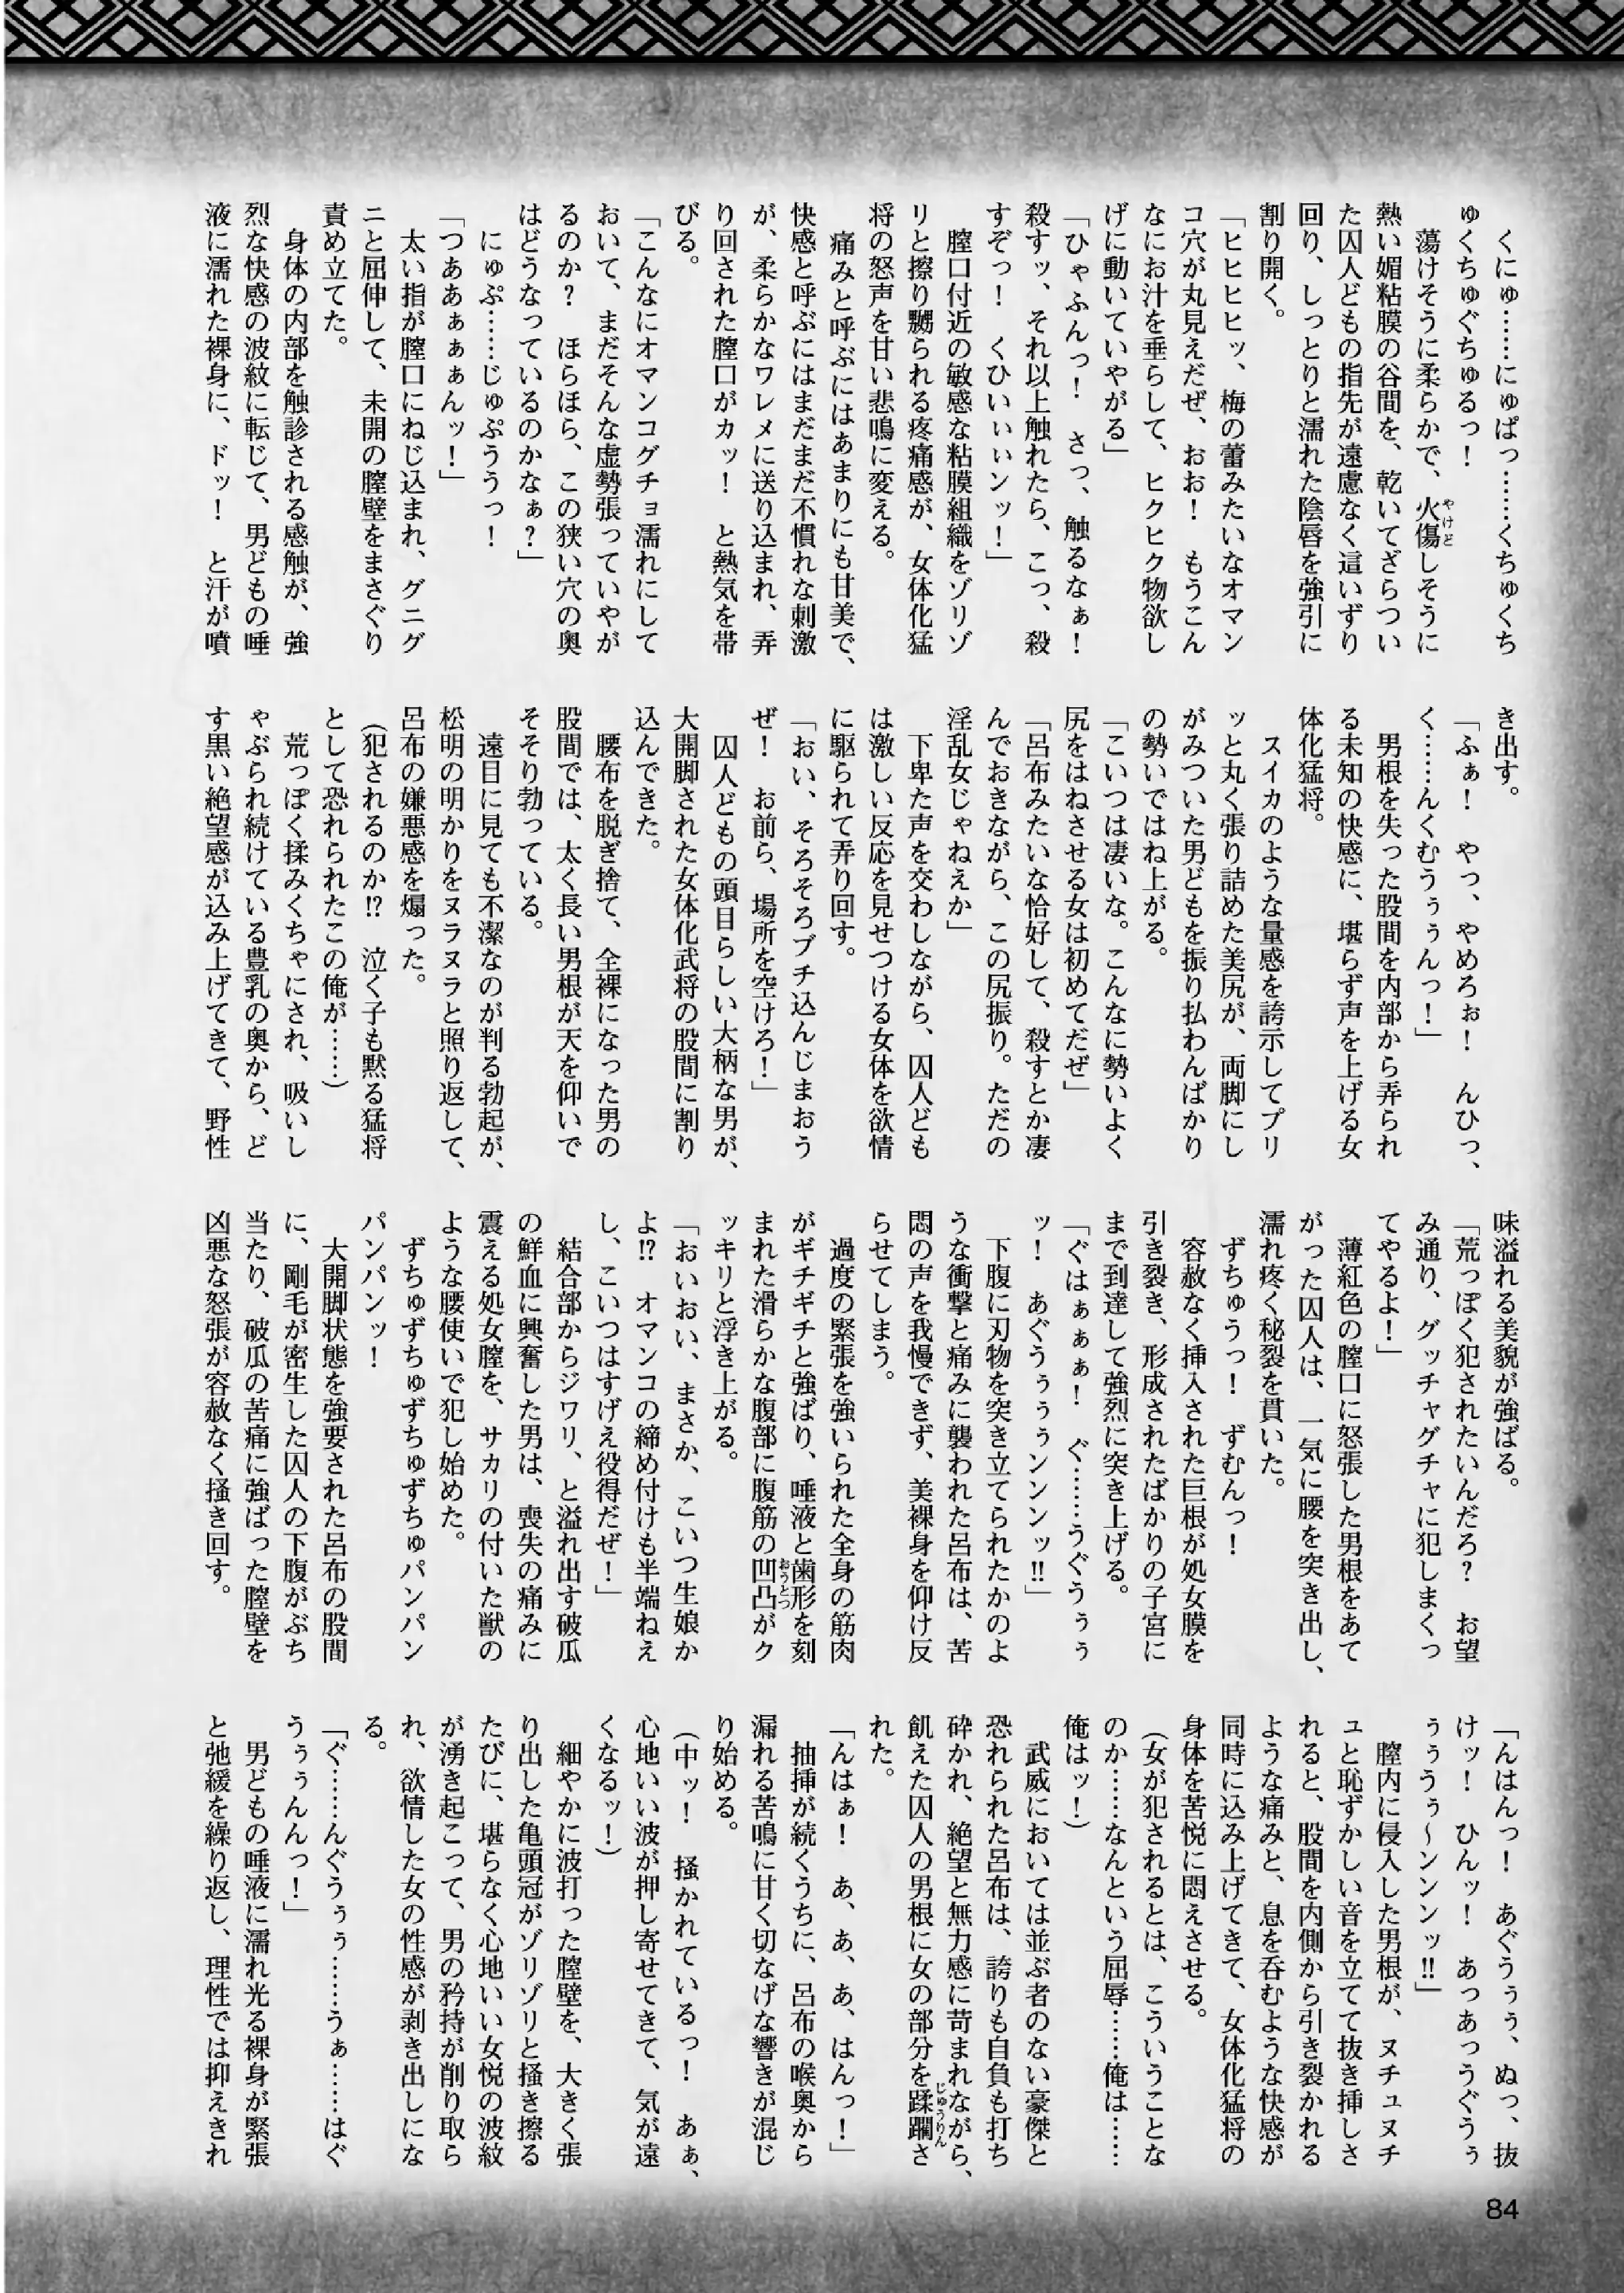 くにゅ……にゅぱっ……くちゅくち
ゅくちゅぐちゅるっ！
蕩けそうに柔らかで、火傷しそうに
熱い媚粘膜の谷間を、乾いてざらつい
た囚人どもの指先が遠慮なく這いずり
回り、しっとりと濡れた陰唇を強引に
割り開く。
「ヒヒヒヒッ、梅の蕾みたいなオマン
コ穴が丸見えだぜ、おお！　もうこん
なにお汁を垂らして、ヒクヒク物欲し
げに動いていやがる」
「ひゃふんっ！　さっ、触るなぁ！
殺すッ、それ以上触れたら、こっ、殺
すぞっ！　くひいぃぃンッ！」
膣口付近の敏感な粘膜組織をゾリゾ
リと擦り嬲られる疼痛感が、女体化猛
将の怒声を甘い悲鳴に変える。
痛みと呼ぶにはあまりにも甘美で、
快感と呼ぶにはまだまだ不慣れな刺激
が、柔らかなワレメに送り込まれ、弄
り回された膣口がカッ！　と熱気を帯
びる。
「こんなにオマンコグチョ濡れにして
おいて、まだそんな虚勢張っていやが
るのか？　ほらほら、この狭い穴の奥
はどうなっているのかなぁ？」
にゅぷ……じゅぷううっ！
「つああぁぁぁんッ！」
太い指が膣口にねじ込まれ、グニグ
ニと屈伸して、未開の膣壁をまさぐり
責め立てた。
身体の内部を触診される感触が、強
烈な快感の波紋に転じて、男どもの唾
液に濡れた裸身に、ドッ！　と汗が噴
き出す。
「ふぁ！　やっ、やめろぉ！　んひっ、
く……んくむうぅぅんっ！」
男根を失った股間を内部から弄られ
る未知の快感に、堪らず声を上げる女
体化猛将。
スイカのような量感を誇示してプリ
ッと丸く張り詰めた美尻が、両脚にし
がみついた男どもを振り払わんばかり
の勢いではね上がる。
「こいつは凄いな。こんなに勢いよく
尻をはねさせる女は初めてだぜ」
「呂布みたいな恰好して、殺すとか凄
んでおきながら、この尻振り。ただの
淫乱女じゃねえか」
下卑た声を交わしながら、囚人ども
は激しい反応を見せつける女体を欲情
に駆られて弄り回す。
「おい、そろそろブチ込んじまおう
ぜ！　お前ら、場所を空けろ！」
囚人どもの頭目らしい大柄な男が、
大開脚された女体化武将の股間に割り
込んできた。
腰布を脱ぎ捨て、全裸になった男の
股間では、太く長い男根が天を仰いで
そそり勃っている。
遠目に見ても不潔なのが判る勃起が、
松明の明かりをヌラヌラと照り返して、
呂布の嫌悪感を煽った。
（犯されるのか!?　泣く子も黙る猛将
として恐れられたこの俺が……）
荒っぽく揉みくちゃにされ、吸いし
ゃぶられ続けている豊乳の奥から、ど
す黒い絶望感が込み上げてきて、野性
味溢れる美貌が強ばる。
「荒っぽく犯されたいんだろ？　お望
み通り、グッチャグチャに犯しまくっ
てやるよ！」
薄紅色の膣口に怒張した男根をあて
がった囚人は、一気に腰を突き出し、
濡れ疼く秘裂を貫いた。
ずちゅうっ！　ずむんっ！
容赦なく挿入された巨根が処女膜を
引き裂き、形成されたばかりの子宮に
まで到達して強烈に突き上げる。
「ぐはぁぁぁ！　ぐ……うぐうぅぅ
ッ！　あぐうぅぅぅンンンッ!!」
下腹に刃物を突き立てられたかのよ
うな衝撃と痛みに襲われた呂布は、苦
悶の声を我慢できず、美裸身を仰け反
らせてしまう。
過度の緊張を強いられた全身の筋肉
がギチギチと強ばり、唾液と歯形を刻
まれた滑らかな腹部に腹筋の凹凸がク
ッキリと浮き上がる。
「おいおい、まさか、こいつ生娘か
よ!?　オマンコの締め付けも半端ねえ
し、こいつはすげえ役得だぜ！」
結合部からジワリ、と溢れ出す破瓜
の鮮血に興奮した男は、喪失の痛みに
震える処女膣を、サカリの付いた獣の
ような腰使いで犯し始めた。
ずちゅずちゅずちゅずちゅパンパン
パンパンッ！
大開脚状態を強要された呂布の股間
に、剛毛が密生した囚人の下腹がぶち
当たり、破瓜の苦痛に強ばった膣壁を
凶悪な怒張が容赦なく掻き回す。
「んはんっ！　あぐうぅぅ、ぬっ、抜
けッ！　ひんッ！　あっあっうぐうぅ
ぅぅうぅ～ンンンッ!!」
膣内に侵入した男根が、ヌチュヌチ
ュと恥ずかしい音を立てて抜き挿しさ
れると、股間を内側から引き裂かれる
ような痛みと、息を呑むような快感が
同時に込み上げてきて、女体化猛将の
身体を苦悦に悶えさせる。
（女が犯されるとは、こういうことな
のか……なんという屈辱……俺は……
俺はッ！）
武威においては並ぶ者のない豪傑と
恐れられた呂布は、誇りも自負も打ち
砕かれ、絶望と無力感に苛まれながら、
飢えた囚人の男根に女の部分を蹂躙さ
れた。
「んはぁ！　あ、あ、あ、はんっ！」
抽挿が続くうちに、呂布の喉奥から
漏れる苦鳴に甘く切なげな響きが混じ
り始める。
（中ッ！　掻かれているっ！　あぁ、
心地いい波が押し寄せてきて、気が遠
くなるッ！）
細やかに波打った膣壁を、大きく張
り出した亀頭冠がゾリゾリと掻き擦る
たびに、堪らなく心地いい女悦の波紋
が湧き起こって、男の矜持が削り取ら
れ、欲情した女の性感が剥き出しにな
る。
「ぐ……んぐうぅぅ……うぁ……はぐ
うぅぅんんっ！」
男どもの唾液に濡れ光る裸身が緊張
と弛緩を繰り返し、理性では抑えきれ
84